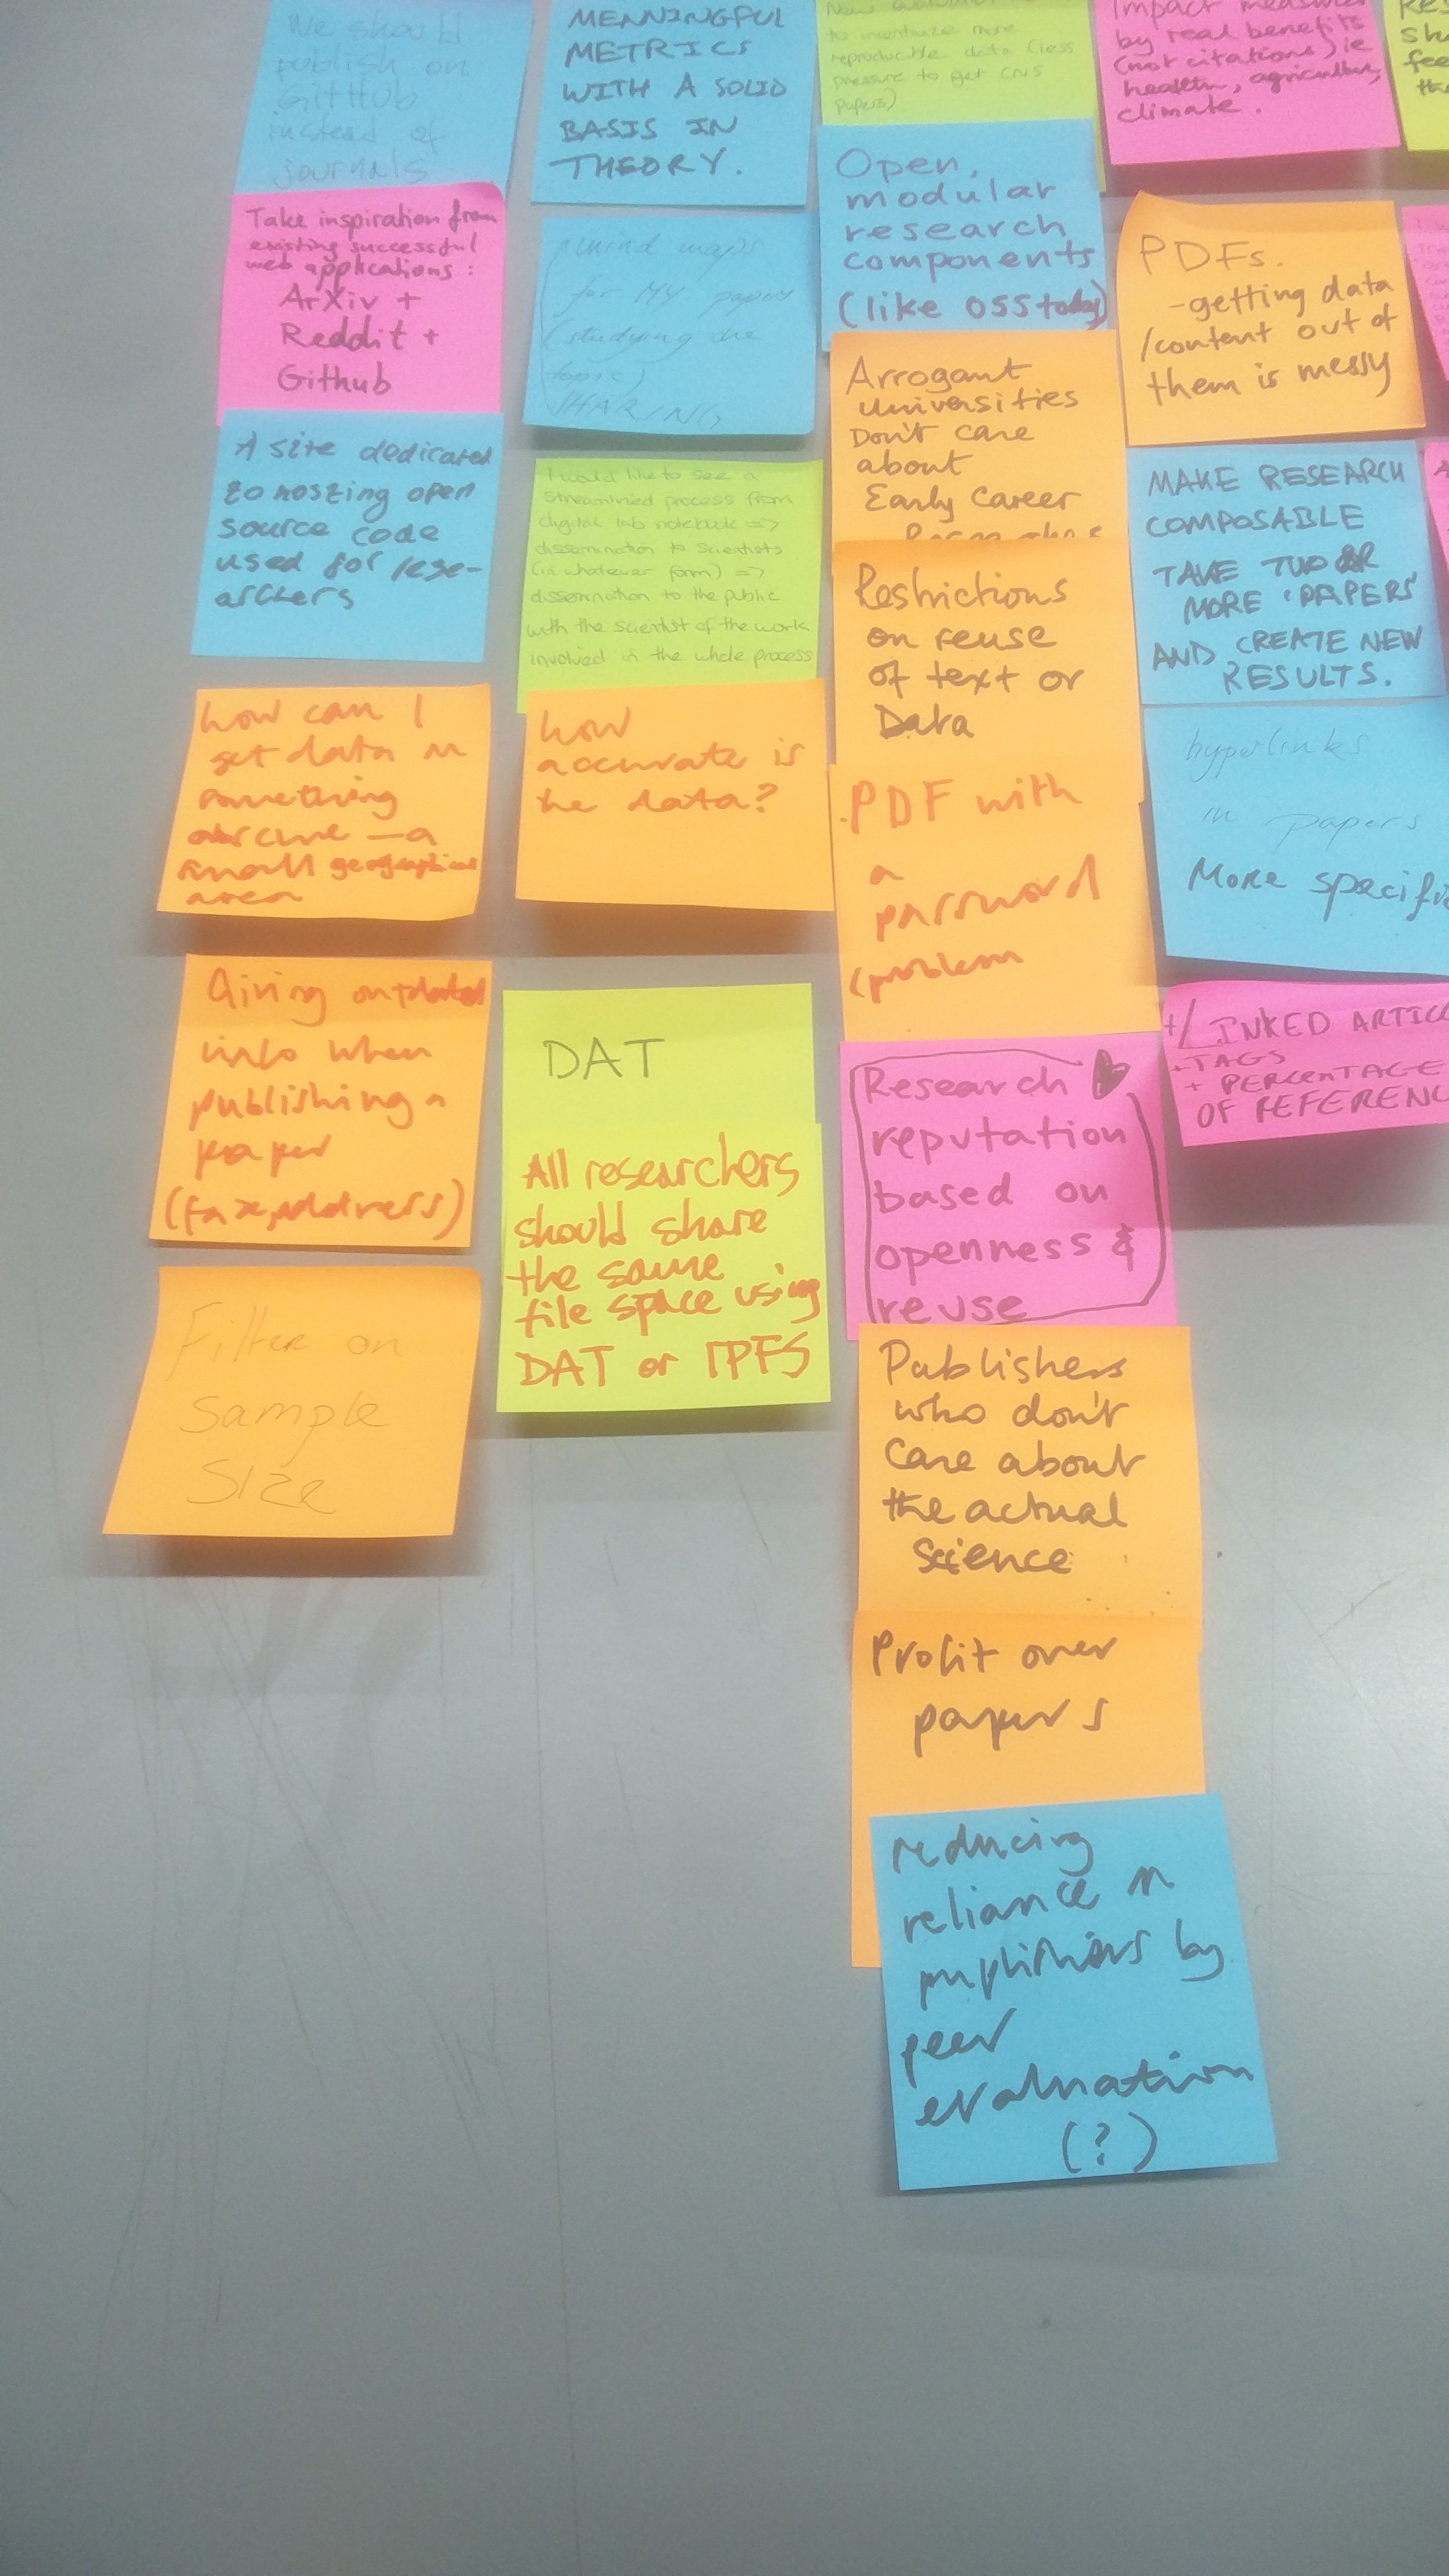 We should
publish on
GitHub
instead of
journals
Take inspiration from
existing successful
web applications:
ArXiv +
Reddit +
Github
A site dedicated
to hosting open
source code
used for rese-
archers
how can I
get data on
something
obscure - a
small geographical
area
Giving outdated
info when
publishing a
paper
(fax, address)
Filter on
Sample
Size
MENNINGFUL
METRICS
WITH A SOLID
BASIS IN
THEORY.
mind maps
for MY papers
(studying the
topic)
SHARING
I would like to see a
streamlined process from
digital lab notebook =>
dissemination to scientists
(in whatever form) =>
dissemination to the public
with the scientist of the work
involved in the whole process
how
accurate is
the data?
DAT
All researchers
should share
the same
file space using
DAT or IPFS
to incentivize more
reproducible data (less
pressure to get CNS
papers)
Open,
modular
research
components
(like OSS today)
Arrogant
universities
Don't care
about
Early Career
Restrictions
on reuse
of text or
Data
PDF with
a
password
(problem
Research
reputation
based on
openness &
reuse
Publishers
who don't
care about
the actual
science
Profit over
papers
reducing
reliance on
publishers by
peer
evaluation
(?)
Impact measured
by real benefits
(not citations) ie
health, agriculture,
climate.
PDFs.
-getting data
/content out of
them is messy
MAKE RESEARCH
COMPOSABLE
TAKE TWO OR
MORE 'PAPERS'
AND CREATE NEW
RESULTS.
hyperlinks
in papers
More specific
+ LINKED ARTICL
+ TAGS
+ PERCENTAGE
OF REFERENC